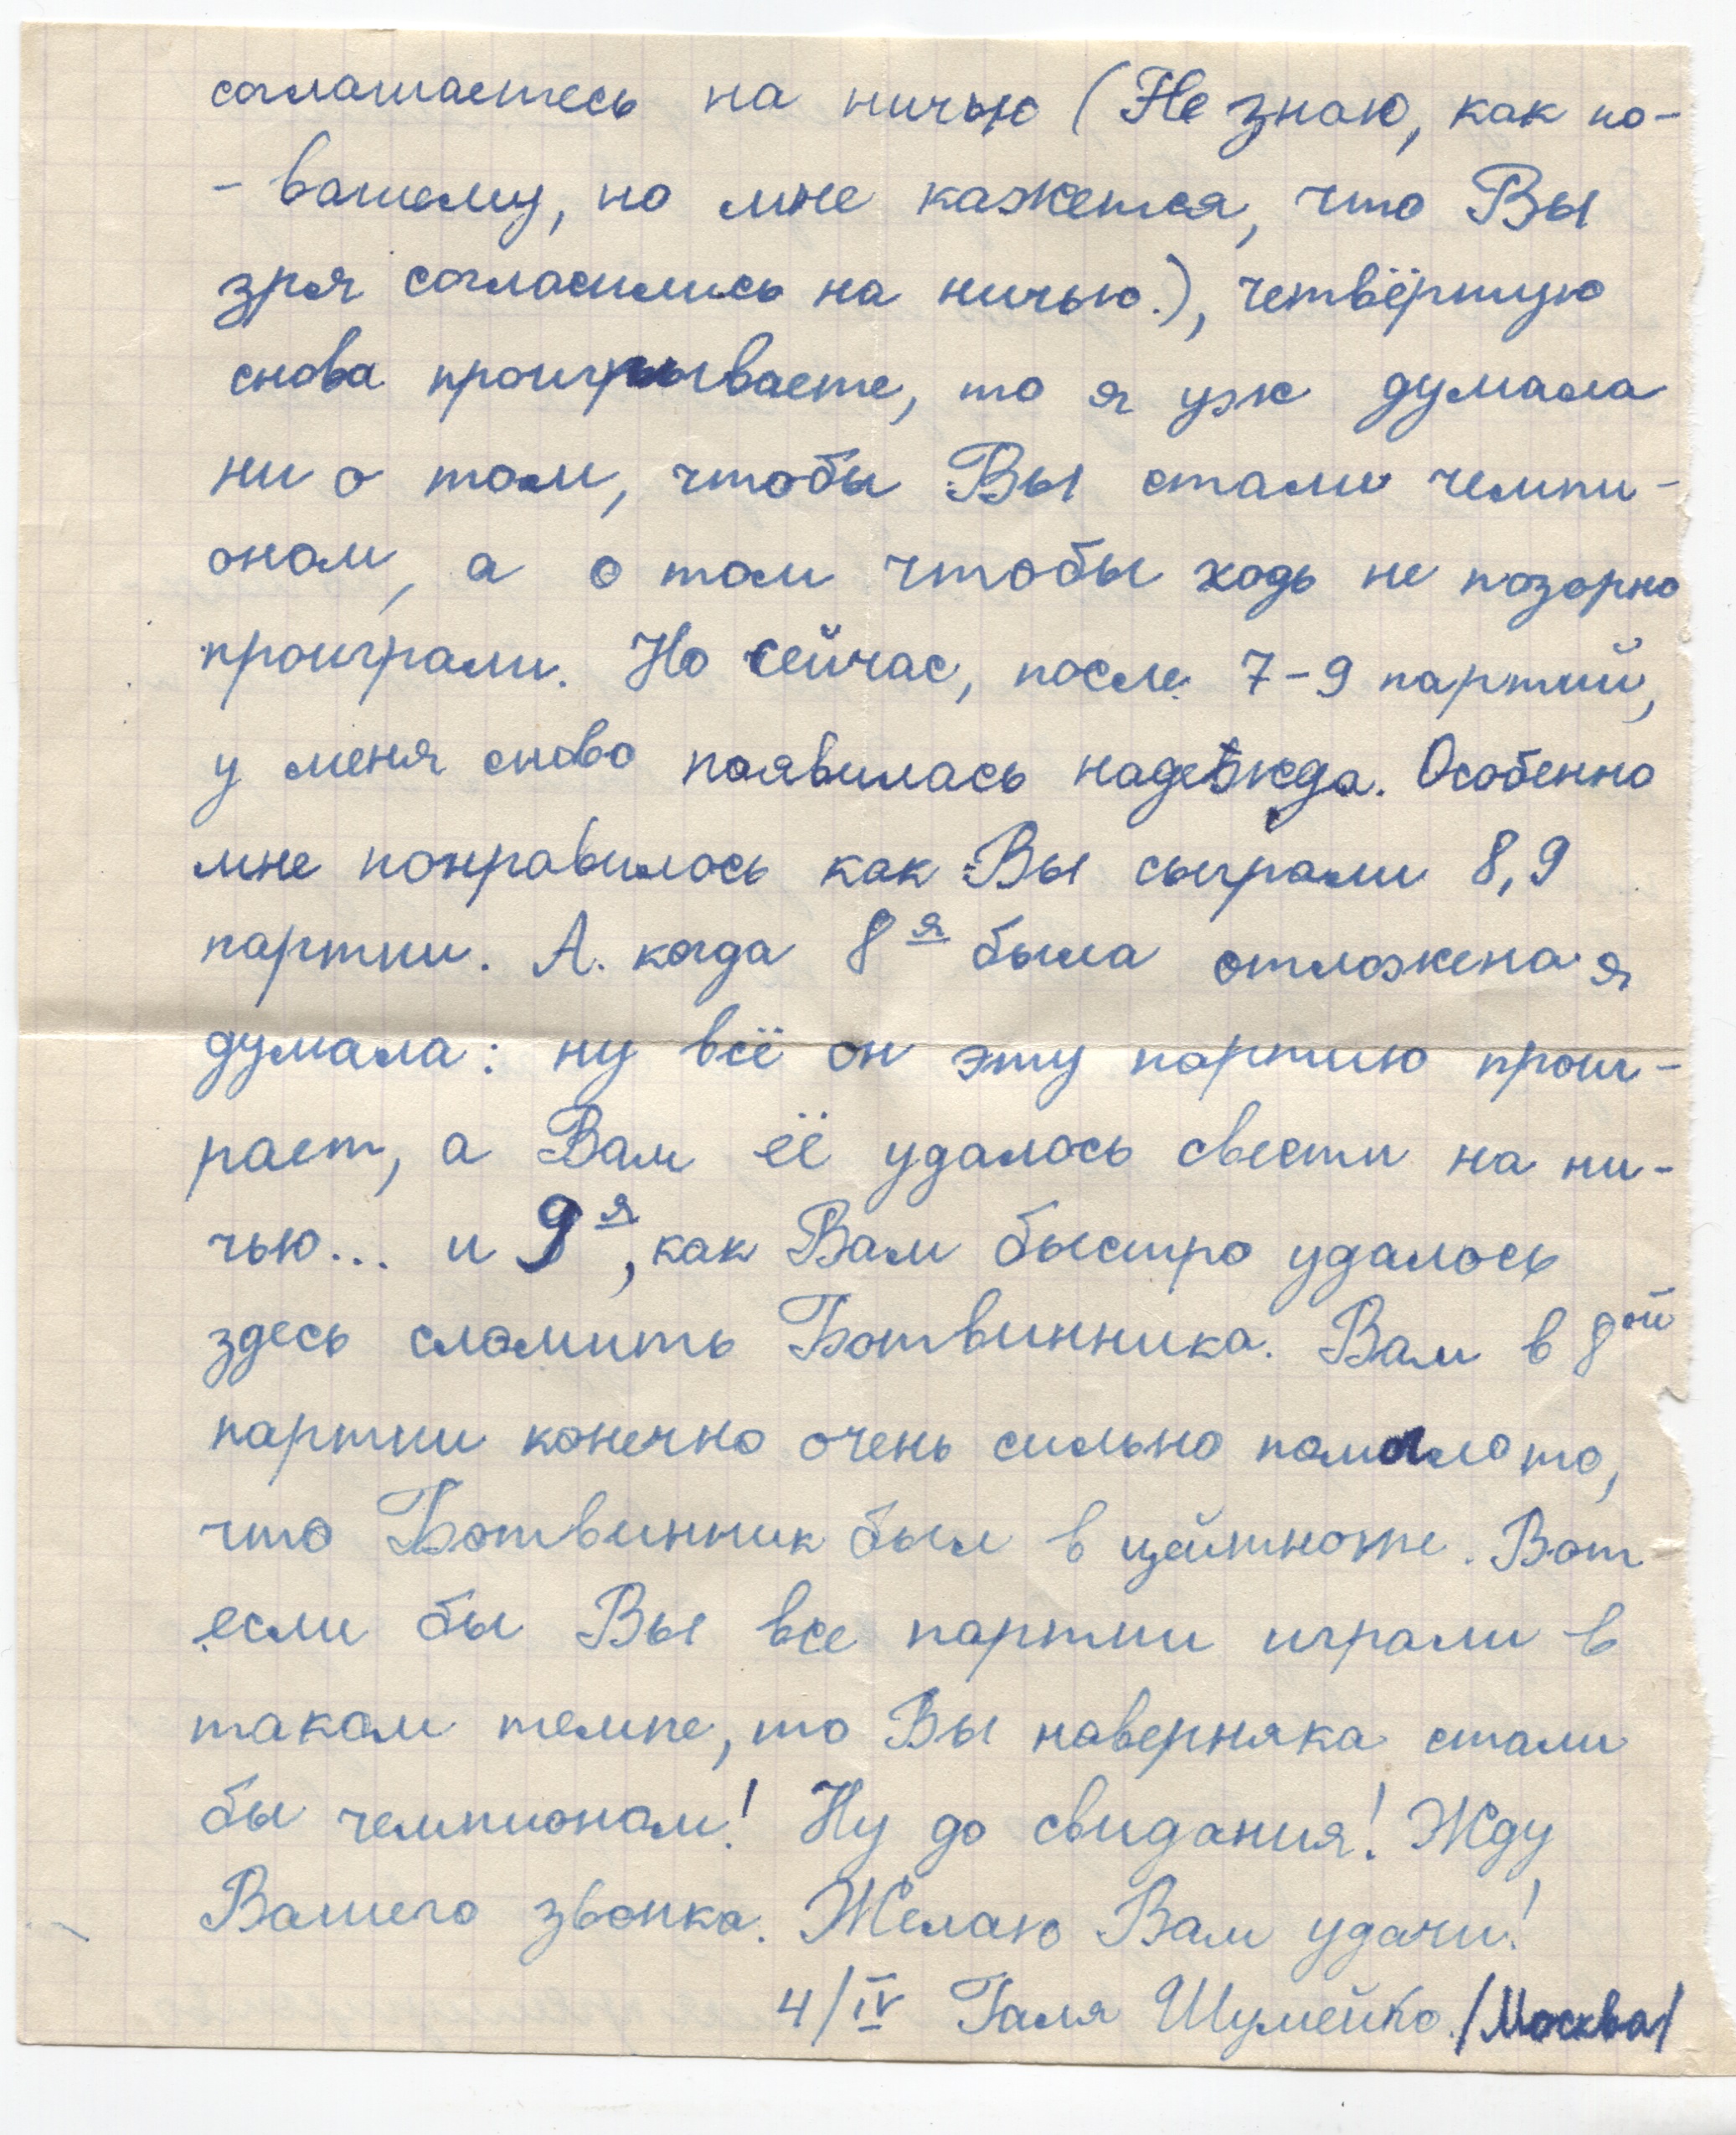 соглашаетесь на ничью (Не знаю, как по-
- вашему, но мне кажется, что Вы
зря согласились на ничью.), четвёртую
снова проигрываете, то я уж думала
ни о том, чтобы Вы стали чемпи-
оном, а о том чтобы ходь не позорно
проиграли. Но сейчас, после 7-9 партий,
у меня снова появилась надежда. Особенно
мне понравилось как Вы сыграли 8,9
партии. А. когда 8я была отложена я
думала: ну всё он эту партию проиг-
рает, а Вам её удалось свести на ни-
чью... и 9я, как Вам быстро удалось
здесь сломить Ботвинника. Вам в 8ой
партии конечно очень сильно помогло то,
что Ботвинник был в цейтноте. Вот
если бы Вы все партии играли в
таком темпе, то Вы наверняка стали
бы чемпионом! Ну до свидания! Жду
Вашего звонка. Желаю Вам удачи!
4/IV Галя Шумейко /Москва/